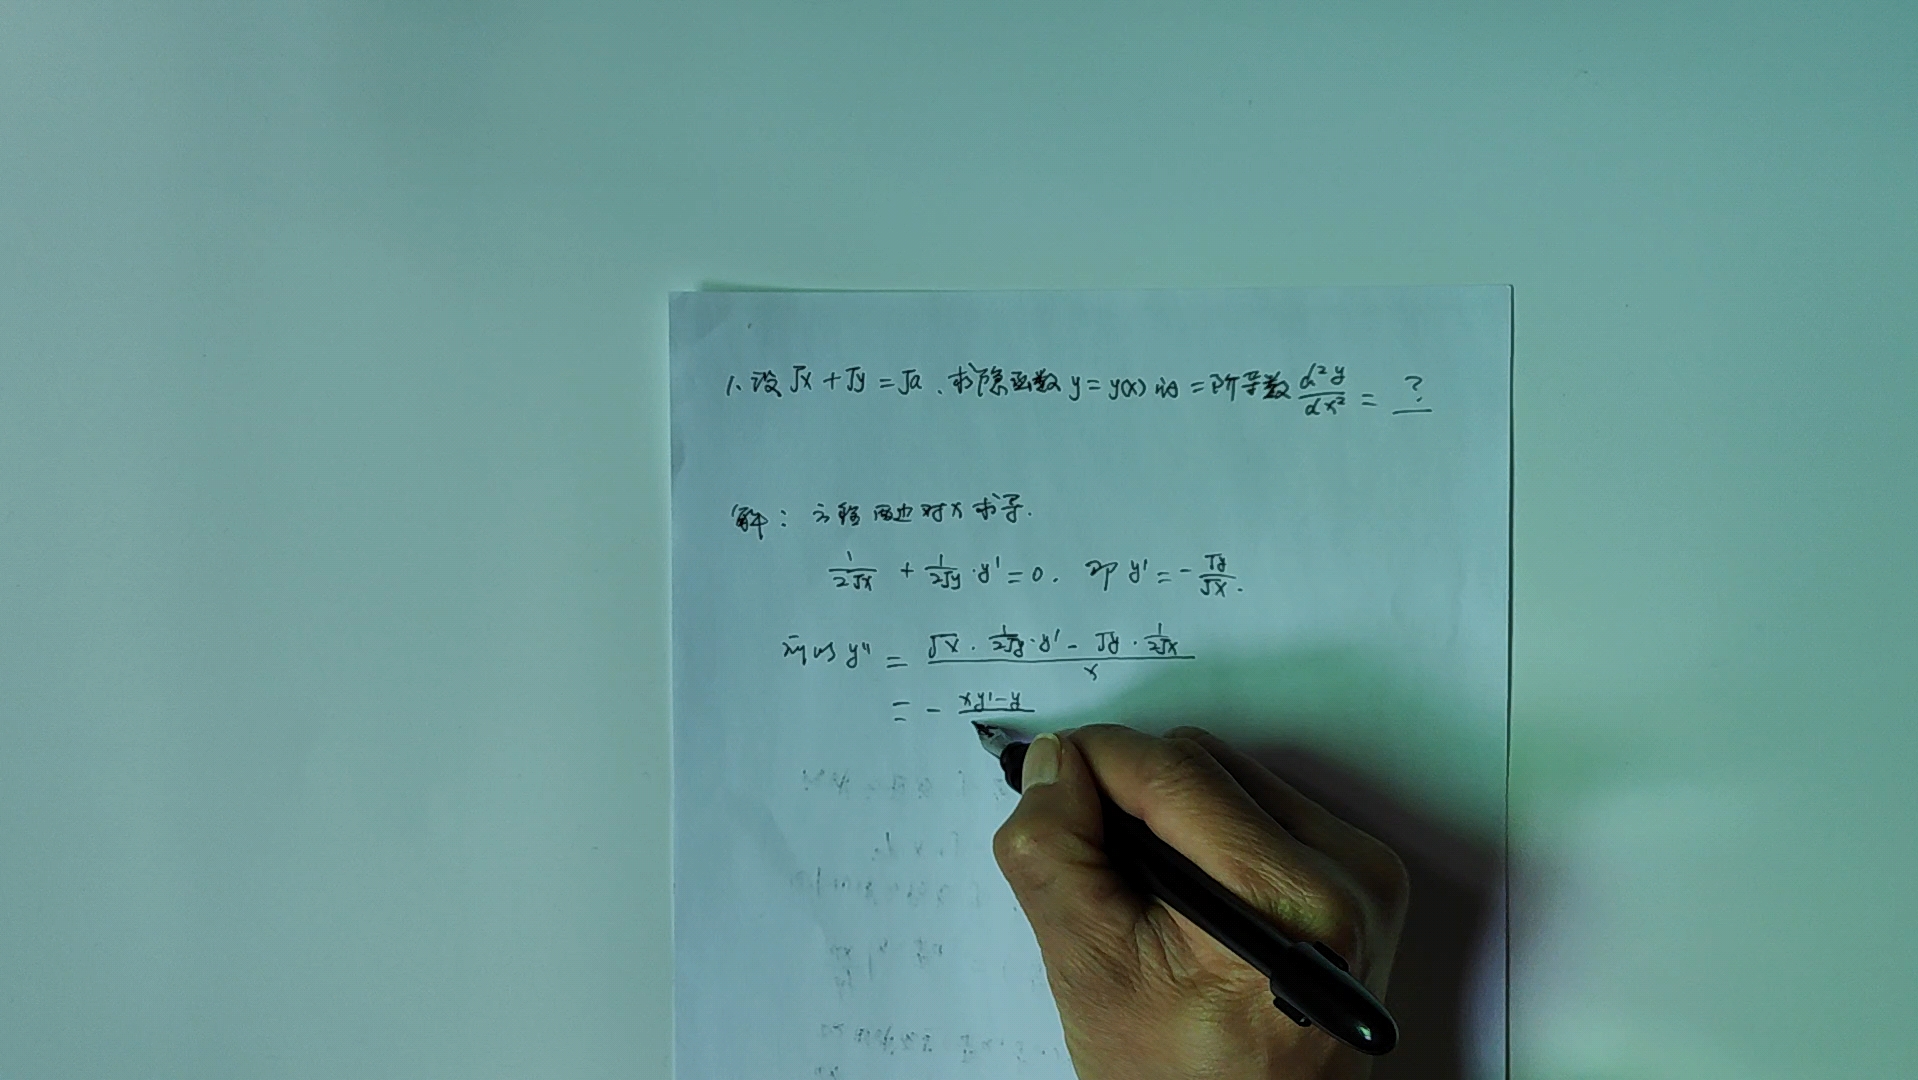 1. 设 √x + √y = √a, 求隐函数 y = y(x) 的二阶导数 d²y/dx² = ?
解: 方程两边对x求导.
1/(2√x) + 1/(2√y) · y' = 0. 即 y' = - √y/√x.
所以 y'' = (√x · 1/(2√y) · y' - √y · 1/(2√x))/x
= - (xy' - y)/